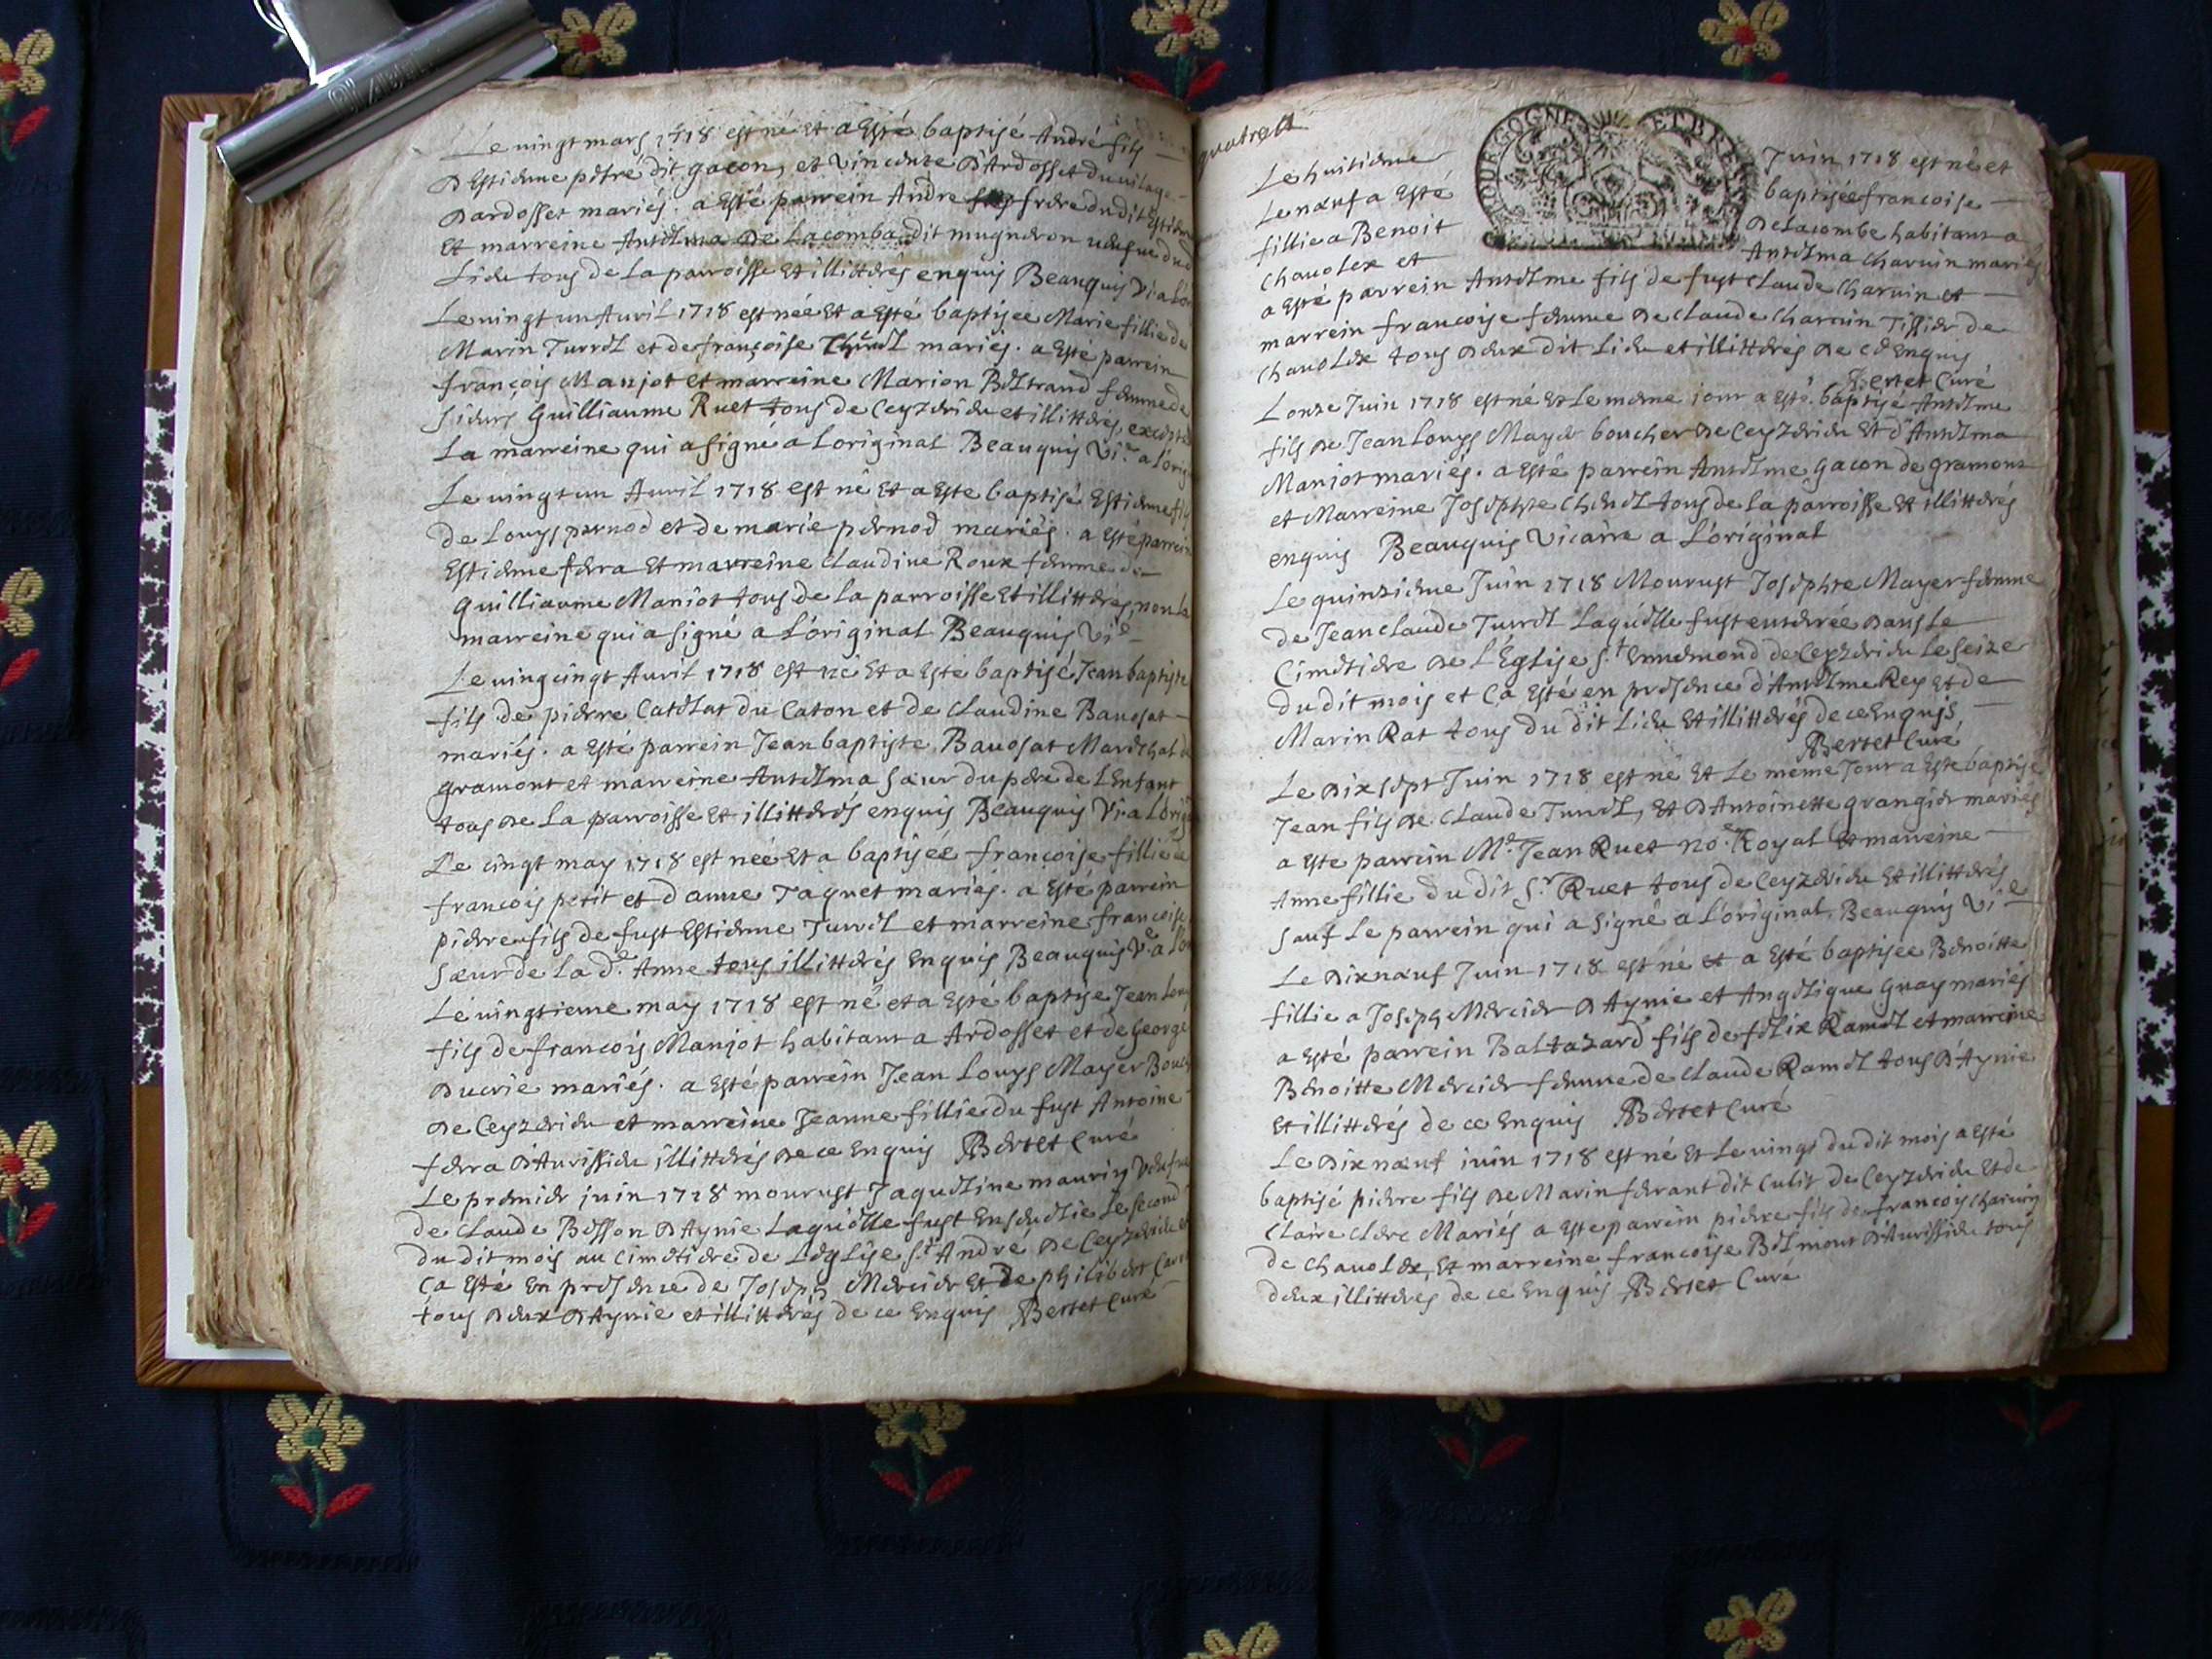 Le vingt mars 1718 est né et a Esté baptisé André fils
D'Estienne pitré dit gacon, et Vincente D'Ardosset du vilage
Dardosset mariés. a Esté parrein Andre frere du dit Estienne
Et marreine Antelma De Lacomba dit mugneron vefve dud
Lieu tous de la parroisse Et illittérés enquis Beauquis Vi. a L'ori
Le vingt un Avril 1718 est née Et a Esté baptisee Marie fillie de
Marin Turrel et de françoise mariés. a Esté parrein
françois Manjot et marreine Marion Beltrand femme de
sieurs Guilliaume Ruet tous de Ceyzerieu et illittérés excepté
La marreine qui a signé a Loriginal Beauquis Vi.re a Lorig
Le vingt un Avril 1718 est né Et a Este baptisé Estienne fils
de Louys pernod et de marie pernod mariés. a Esté parrein
Estienne fera Et marreine Claudine Roux femme de
Guilliaume Maniot tous de la parroisse Et illittérés, non la
marreine qui a signé a L'original Beauquis Vi.e
Le vingcinqt Avril 1718 est né Et a Esté baptisé Jean baptiste
fils de pierre Catelat du Caton et de Claudine Bavosat
mariés. a Esté parrein Jean baptiste Bavosat Mareschal de
gramont et marreine Antelma sœur du pere de L'Enfant
tous De La parroisse Et illittérés enquis Beauquis Vi. a Lorig
Le cinqt may 1718 est née Et a baptisée françoise fillie de
francois petit et d'anne Taquet mariés. a Esté parrein
pierre fils de fust Estienne Turrel et marreine francoise
sœur de la d.e Anne tous illittérés Enquis Beauquis V.e a L'or
Le vingtieme may 1718 est né et a Esté baptisé Jean Louy
fils de francois Manjot habitant a Ardosset et de George
Ducrie mariés. a Esté parrein Jean Louys Mayer Bouch
De Ceyzerieu et marreine Jeanne fillie du fust Antoine
ferra D'Avrissieu illittérés De ce Enquis Bertet Curé
Le premier juin 1718 mourust Jaqueline maurin Vefve
de Claude Besson D'Aynie Laquelle fust Ensevelie Le second
du dit mois au Cimetiere de L'eglise St André De Ceyzerieu et
Ca Esté En presence de Joseph Mercier Et De philibert
tous Deux D'Aynie et illittérés de ce Enquis Bertet Curé
Le huitieme Juin 1718 est né et
Le nœuf a Esté baptisée francoise
fillie a Benoit De Lacombe habitant a
Chavolex et Antelma Charvin mariés
a Esté parrein Antelme fils de fust Claude Charvin et
marrein francoise femme De Claude Charvin Tissier de
Chavolex tous deux dit Lieu et illittérés De ce Enquis
Bertet Curé
L'onze Juin 1718 est né Et Le meme jour a Esté baptisé Antelme
fils De Jean Louys Mayer boucher De Ceyzerieu Et d'Antelma
Maniot mariés. a Esté parrein Antelme gacon de gramont
et Marreine Josephte Chenel tous de la parroisse Et illittérés
enquis Beauquis Vicaire a L'original
Le quinzieme Juin 1718 Mourust Josephte Mayer femme
de Jean Claude Turrel Laquelle fust enterrée Dans Le
Cimetiere De L'Eglise S.t Ennemond de Ceyzerieu Le seize
du dit mois et Ca Esté en presence d'Antelme Rey Et de
Marin Rat tous du dit Lieu Et illittérés de ce Enquis
Bertet Curé
Le Dix sept Juin 1718 est né Et Le meme Jour a Este baptisé
Jean fils De Claude Turrel, Et D'Antoinette grangier mariés
a Este parrein M.e Jean Ruet no.re Royal Et marreine
Anne fillie du dit S.r Ruet tous de Ceyzerieu Et illittérés
sauf Le parrein qui a signé a L'original. Beauquis Vi.e
Le Dixnœuf Juin 1718 est né et a Esté baptisee Benoitte
fillie a Joseph Mercier D'Aynie et Angelique Guay mariés
a Esté parrein Baltazard fils de felix Ramel et marreine
Benoitte Mercier femme de Claude Ramel tous D'Aynie
Et illittérés de ce Enquis Bertet Curé
Le Dixnœuf juin 1718 est né Et Le vingt du dit mois a Esté
baptisé pierre fils De Marin ferrant dit Culit De Ceyzerieu Et de
Claire Clerc Mariés a Este parrein pierre fils de francois Charvin
de Chavolex, Et marreine francoise Belmont D'Avrissieu tous
deux illittérés de ce Enquis Bertet Curé